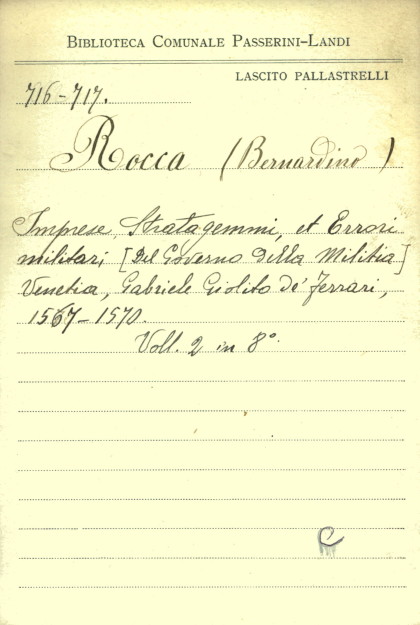 BIBLIOTECA COMUNALE PASSERINI-LANDI
LASCITO PALLASTRELLI
716-717.
Rocca (Bernardino)
Imprese, Stratagemmi, et Errori
militari, [Del Governo Della Militia]
Venetia, Gabriele Giolito de' Ferrari,
1567-1570.
Voll. 2 in 8°.
C